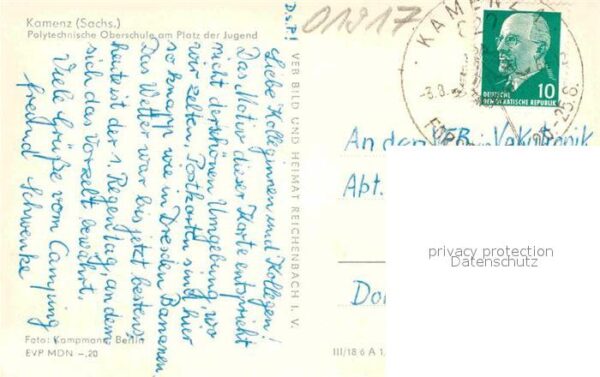 Kamenz (Sachs.)
Polytechnische Oberschule am Platz der Jugend
D.s.P!
Liebe Kolleginnen und Kollegen!
Das Motiv dieser Karte entspricht
nicht der schönen Umgebung, wo
wir zelten. Postkarten sind hier
so knapp wie in Dresden Bananen.
Das Wetter war bis jetzt bestens,
heute ist der 1. Regentag, an dem
sich das Vorzelt bewährt.
Viele Grüße vom Camping
freund Schwenke
Foto: Kampmann, Berlin
EVP MDN –,20
VEB BILD UND HEIMAT REICHENBACH I. V.
III/18 6 A 1
01917
KAMENZ
-3.8.
25.6.
10
DEUTSCHE
DEMOKRATISCHE REPUBLIK
An den VEB Vakutronik
Abt.
privacy protection
Datenschutz